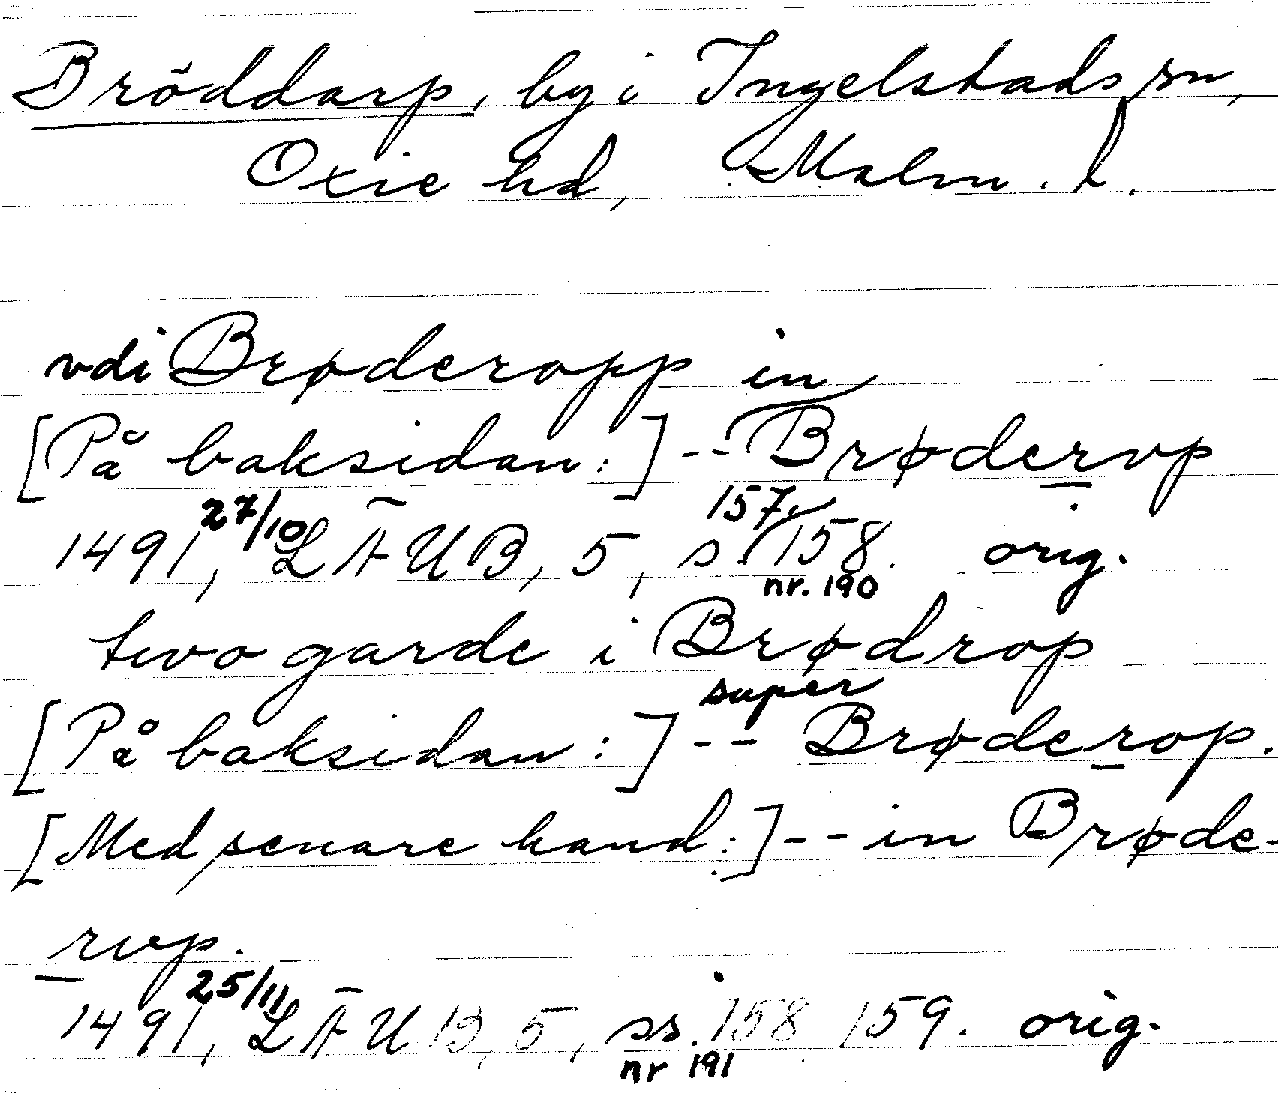 Bröddarp, by i Ingelstads sn,
Oxie hd, Malm. l.
vdi Brøderopp in
[På baksidan:] -- Brødervp
1491, 27/10 LÄUB, 5, s. 157, 158. orig.
nr. 190
two garde i Brødrop
super
[På baksidan:] -- Brøderop.
[Med senare hand:] -- in Brøde-
rvp.
1491, 25/11 LÄUB, 5, ss. 158 159. orig.
nr 191